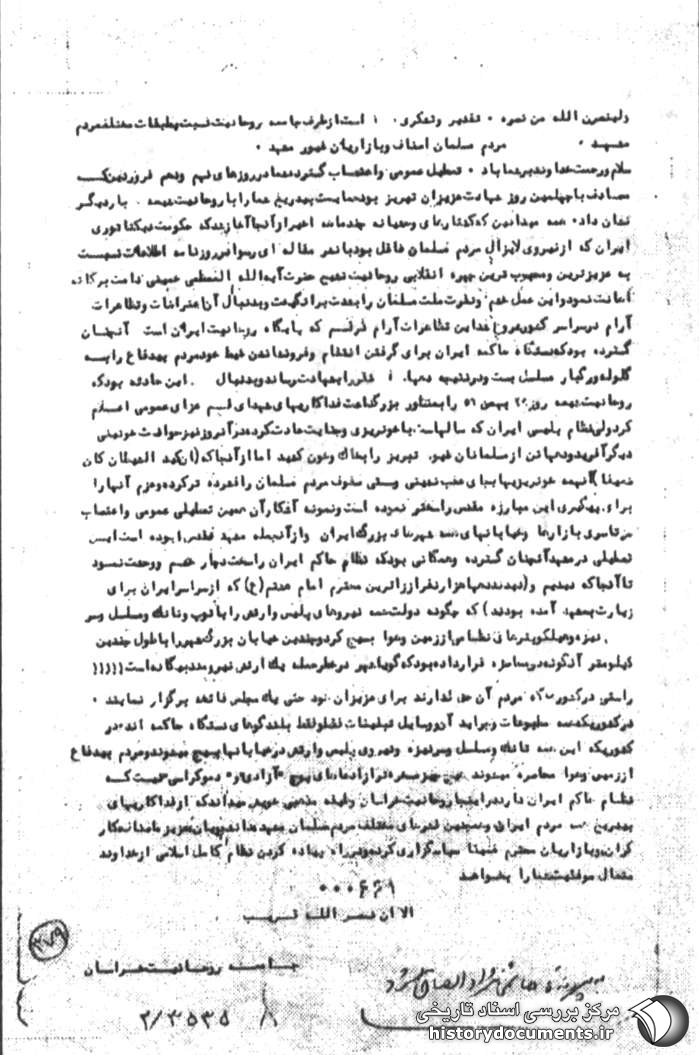 ولینصرن الله من نصره ۰ تقدیر وتشکری است ازطرف جامعه روحانیت نسبت بطبقات مختلف مردم
مشهد ۰ مردم مسلمان اصناف وبازاریان غیور مشهد ۰
سلام ورحمت خداوند برشما باد ۰ تعطیل عمومی واعتصاب گسترده شما در روزهای نهم ودهم فروردین که
مصادف با چهلمین روز شهادت عزیزان تبریز بود حمایت بیدریغ شما را با روحانیت شیعه باردیگر
نشان داد ۰ همه میدانیم که کشتارهای وحشیانه چندماهه اخیر از آنجا آغاز شد که حکومت دیکتاتوری
ایران که ازنیروی لایزال مردم مسلمان غافل بود با نشر مقاله ای رسوا در روزنامه اطلاعات نسبت
به عزیزترین ومحبوب ترین چهره انقلابی روحانیت تشیع حضرت آیه الله العظمی خمینی دامت برکاته
اهانت نمود واین عمل خشم ونفرت ملت مسلمان را بشدت برانگیخت وبدنبال آن اعتراضات وتظاهرات
آرام درسراسر کشور شروع شد این تظاهرات آرام در قم که پایگاه روحانیت ایران است آنچنان
گسترده بود که دستگاه حاکمه ایران برای گرفتن انتقام وفرونشاندن خود مردم بیدفاع را به
گلوله ورگبار مسلسل بست ودرنتیجه دهها را بشهادت رساند وبدنبال این حادثه بود که
روحانیت شیعه روز ۲۰ بهمن ۵۶ را بمنظور بزرگداشت فداکاریهای شهدای قم عزای عمومی اعلام
کرد ولی نظام پلیسی ایران که سالهاست با خونریزی وجنایت عادت کرده در آنروز نیز حوادث خونینی
دیگر آفرید ودهها تن از مسلمانان غیور تبریز را بخاک وخون کشید اما از آنجا که (ان کید الشیطان کان
ضعیفا) آنهمه خونریزیها بجای عقب نشینی وسستی صفوف مردم مسلمان را فشرده تر کرده وعزم آنها را
برای پیگیری این مبارزه مقدس راسختر نموده است ونمونه آشکار آن همین تعطیلی عمومی واعتصاب
در تاسری بازارها وخیابانهای همه شهرهای بزرگ ایران وازآنجمله مشهد مقدس بوده است این
تعطیلی درمشهد آنچنان گسترده وهمگانی بود که نظام حاکم ایران را سخت دچار خشم ووحشت نمود
تا آنجا که دیدیم و(دیدند دهها هزار نفر از زائرین محترم امام هشتم (ع) که ازسراسر ایران برای
زیارت بمشهد آمده بودند) که چگونه دولت همه نیروهای پلیس وارتش را با توپ وتانک ومسلسل وسر
نیزه وهلیکوپترهای نظامی از زمین وهوا بسیج کرد وچندین خیابان بزرگ شهر را بطول چندین
کیلومتر آنگونه در محاصره قرار داده بود که گویا شهر در خطر حمله یک ارتش نیرومند بیگانه است (((((
راستی در کشوری که مردم آن حق ندارند برای عزیزان خود حتی یک مجلس فاتحه برگزار نمایند ۰
در کشوریکه همه مطبوعات وجراید آن ووسایل تبلیغات فقط وفقط بلندگوهای دستگاه حاکمه اند در
کشوریکه این همه تانک ومسلسل وسرنیزه ونیروی پلیس وارتش در خیابانها بسیج میشوند ومردم بیدفاع
از زمین وهوا محاصره میشوند از ادعاهای پوچ «آزادی و» دموکراسی نیست که
نظام حاکم ایران دارد در اینجا روحانیت خراسان وظیفه مذهبی خویش میداند که از فداکاریهای
بیدریغ همه مردم ایران وهمچنین قشرهای مختلف مردم مسلمان مشهد
کران وبازاریان محترم سپاسگزاری کرده ودر راه پیاده کردن نظام کامل اسلامی از خداوند
متعال موفقیت شما را بخواهد
۰۰۰۶۶۹
الا ان نصر الله قریب
جامعه روحانیت خراسان
۳۷۹
۲/۳۵۳۵
مرکز بررسی اسناد تاریخی
historydocuments.ir